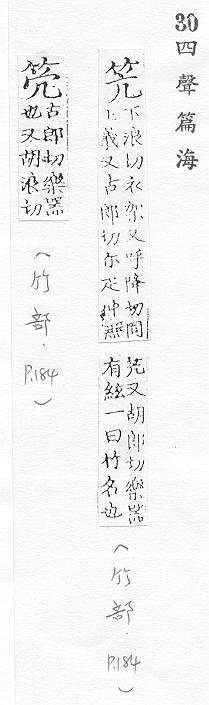 30四聲篇海
笐
下浪切衣架又呼降切同
上義又古郎切尔疋仲無
笐又胡郎切樂器
有絃一曰竹名也
(竹部.P.184)
古郎切樂器
也又胡浪切
(竹部.P.184)